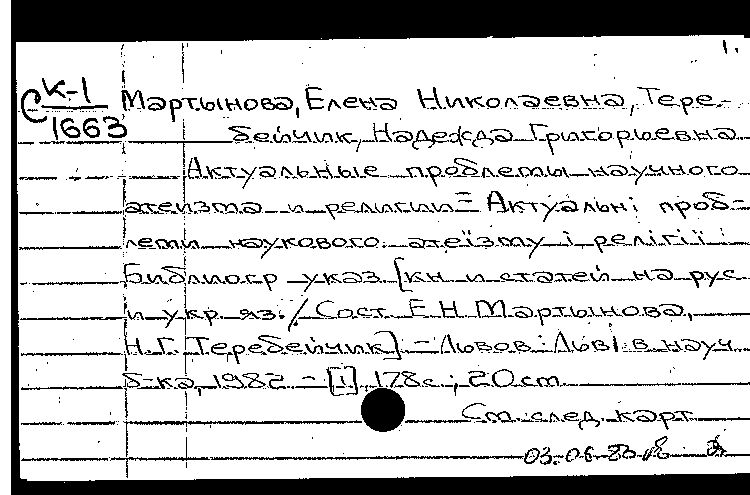 1.
СК-1 Мартынова, Елена Николаевна, Тере-
1663 бейчик, Надежда Григорьевна
Актуальные проблемы научного
атеизма и религии = Актуальнi проб-
леми наукового атеїзму і релігії :
Библиогр указ [кн и статей на рус
и укр. яз. / Сост. Е Н Мартынова,
Н.Г. Теребейчик] - Львов : Львiв науч
б-ка, 1982 - [1], 178с ; 20см
См. след. карт
03-06-83